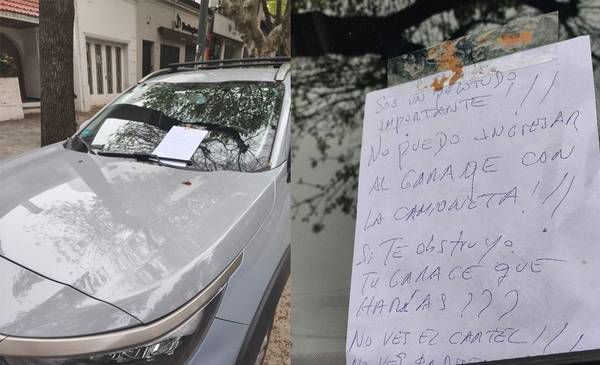 SOS UN PELOTUDO
IMPORTANTE !!!
NO PUEDO INGRESAR
AL GARAGE CON
LA CAMIONETA !!!
SI TE obstruyo
TU GARAGE QUE
HARÍAS ???
NO VES EL CARTEL !!!
NO VES